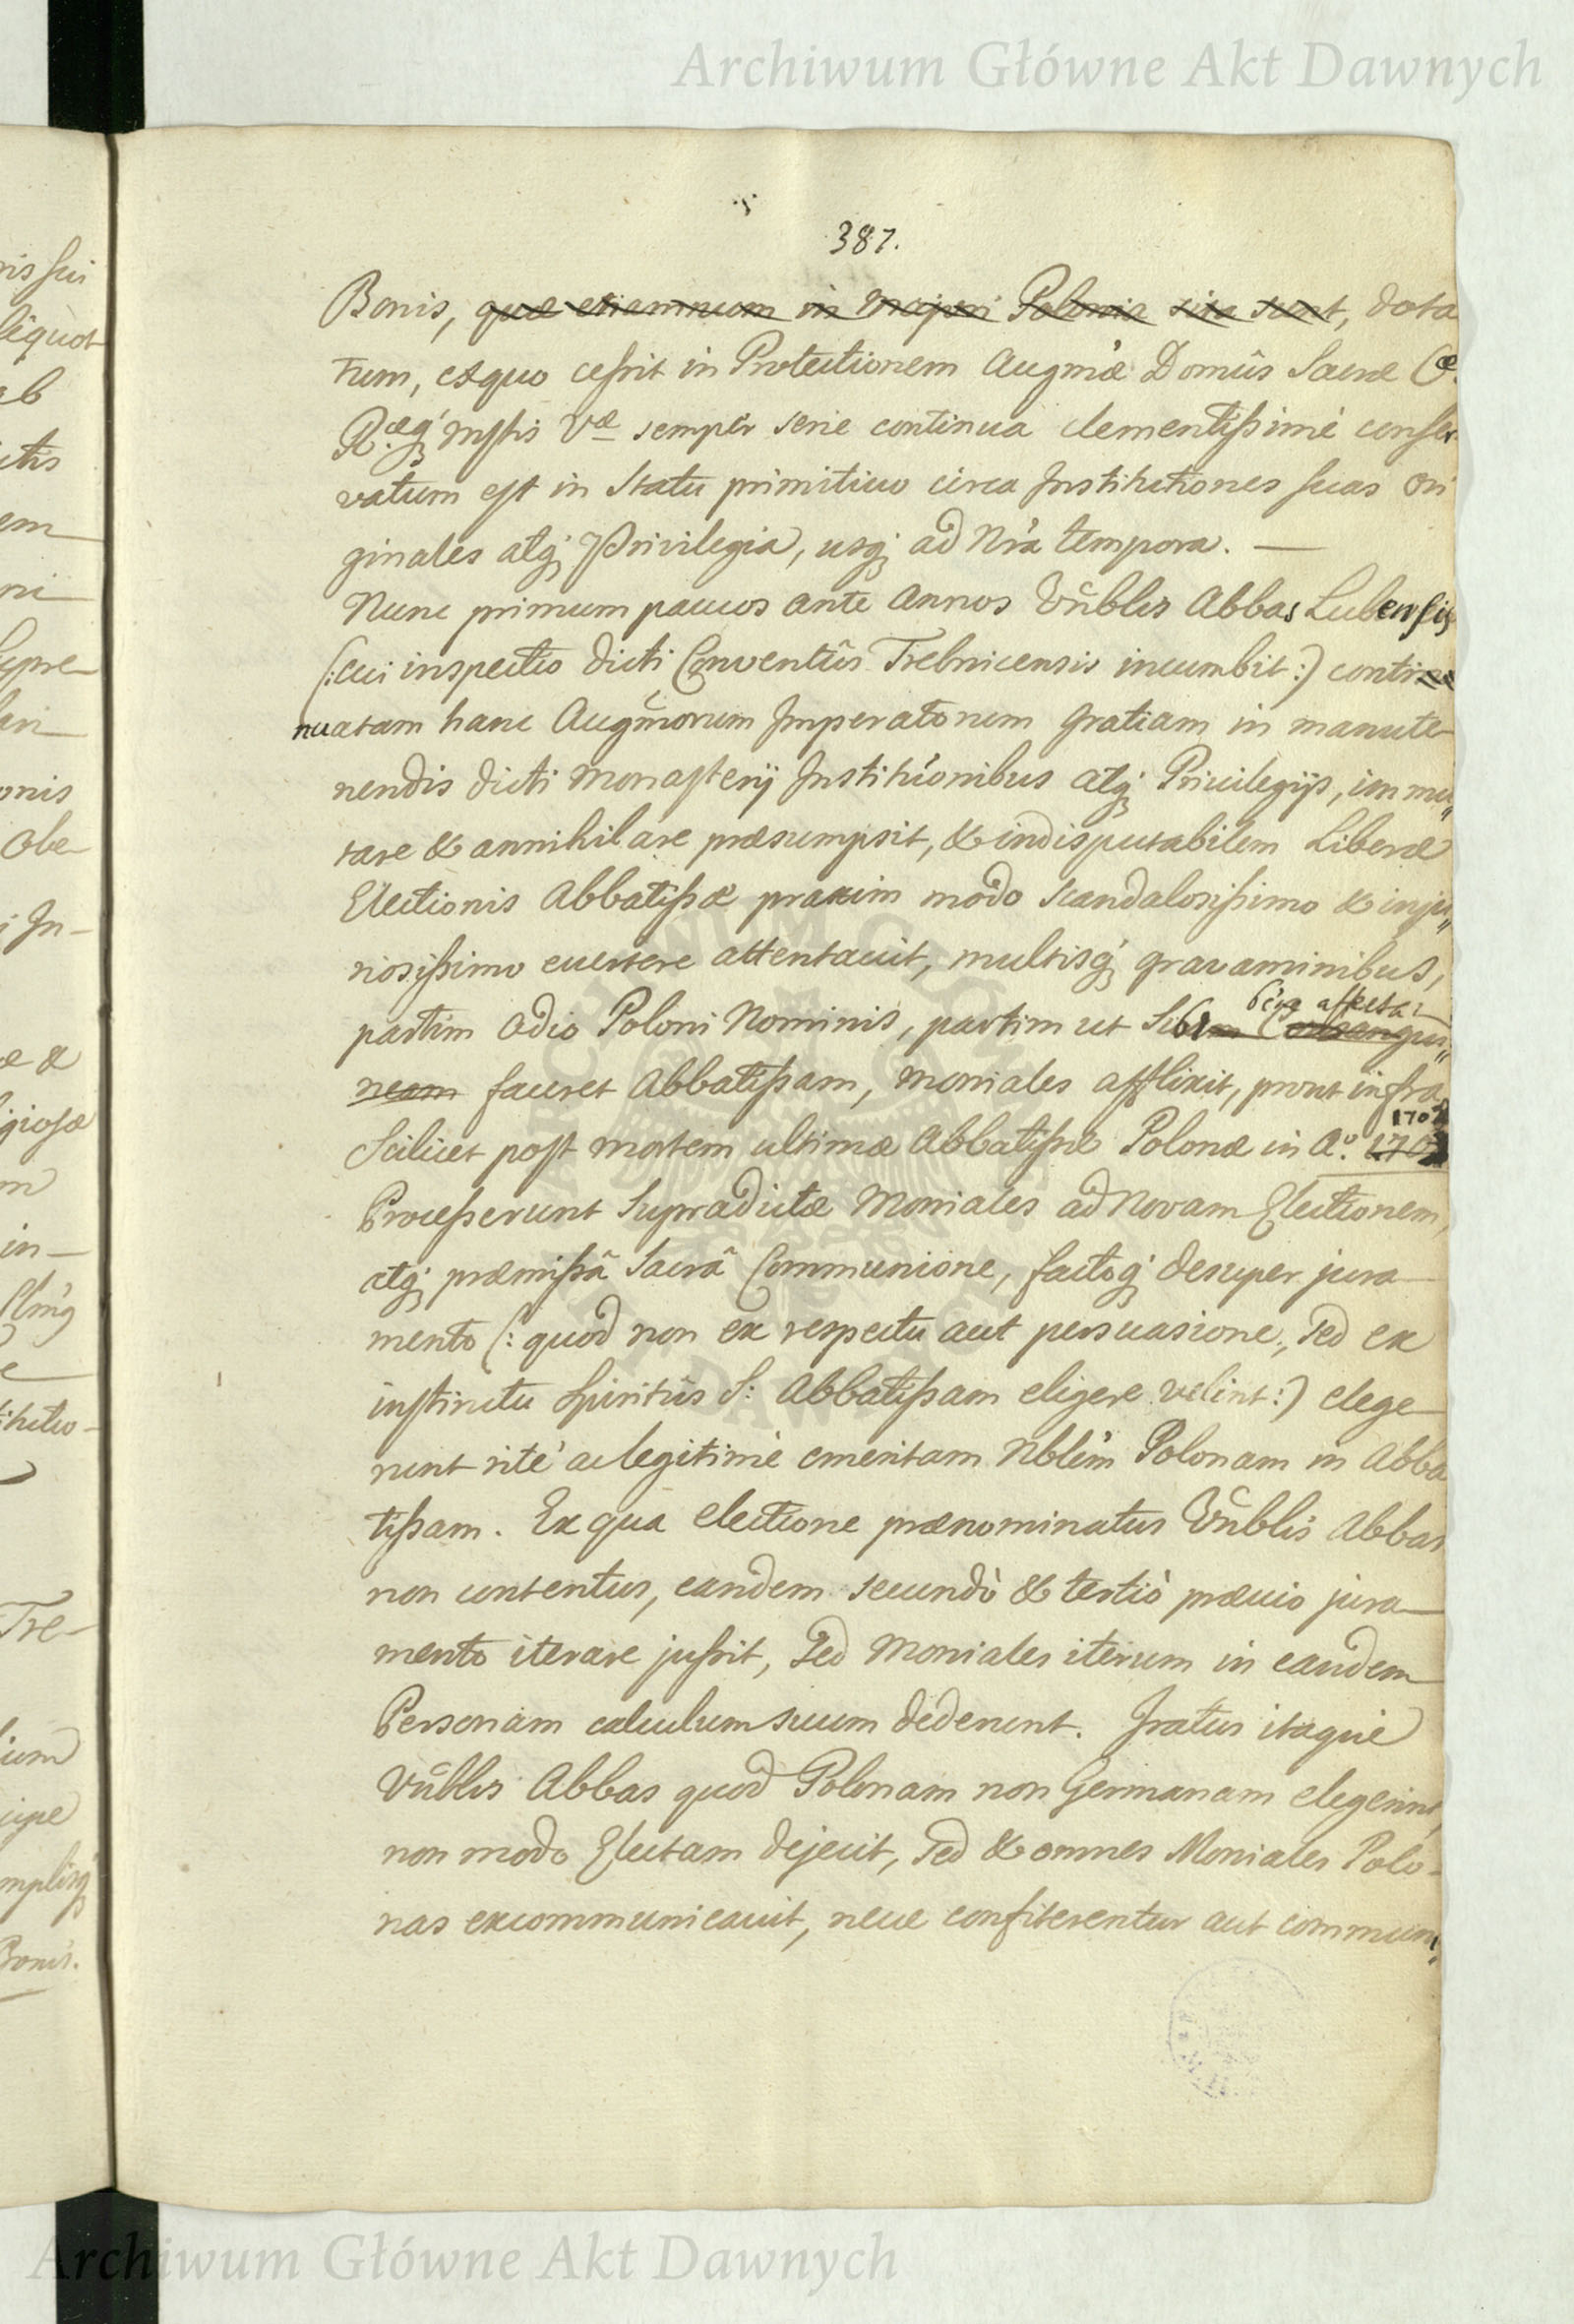 Archiwum Główne Akt Dawnych
387.
Bonis, quæ etiamnum in Majori Polonia sita sunt, dota
tum, exquo cessit in Protectionem Augmæ Domûs Sacræ Cæ.
R.æq́ Mstis Væ semper serie continua clementissimè conser
vatum est in Statu primitivo circa Institutiones suas Ori
ginales atq́ Privilegia, usq́ ad Nr̃a tempora. —
Nunc primum paucos ante Annos Vñblis Abbas Lubensis
(: cui inspectio dicti Conventûs Trebnicensis incumbit :) contine
nuatam hanc Augm̃orum Imperatorum Gratiam in manute
nendis dicti Monasterij Instituõnibus atq́ Privilegijs, immu„
tare & annihilare præsumpsit, & indisputabilem Liberæ
Electionis Abbatissæ praxim modo scandalosissimo & inju„
riosissimo evertere attentavit, multisq́ gravaminibus,
partim odio Poloni Nominis, partim ut Sibi Consangui„
neam faceret Abbatissam, Moniales afflixit, prout infra
Scilicet post mortem ultimæ Abbatissæ Polonæ in Aº. 170
Processerunt Supradictæ Moniales ad Novam Electionem,
atq́ præmissâ Sacrâ Communione, factoq́ desuper jura
mento (: quod non ex respectu aut persuasione, sed ex
instinctu Spiritûs S: Abbatissam eligere velint :) elege
runt ritè ac legitimè emeritam Nblem̃ Polonam in Abba
tissam. Ex qua electione prænominatus Vñblis Abbas
non contentus, eandem secundò & tertiò prævio jura
mento iterare jussit, sed Moniales iterum in eandem
Personam calculum suum dederunt. Iratus itaque
Vñblis Abbas quod Polonam non Germanam elegerint,
non modo Electam dejecit, sed & omnes Moniales Polo
nas excommunicavit, neve confiterentur aut communi„
Archiwum Główne Akt Dawnych